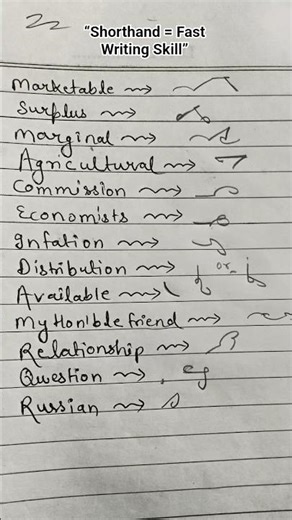 22
“Shorthand = Fast
Writing Skill”
Marketable
Surplus
Marginal
Agricultural
Commission
Economists
Infation
Distribution or
Available
My Hon'ble friend
Relationship
Question
Russian